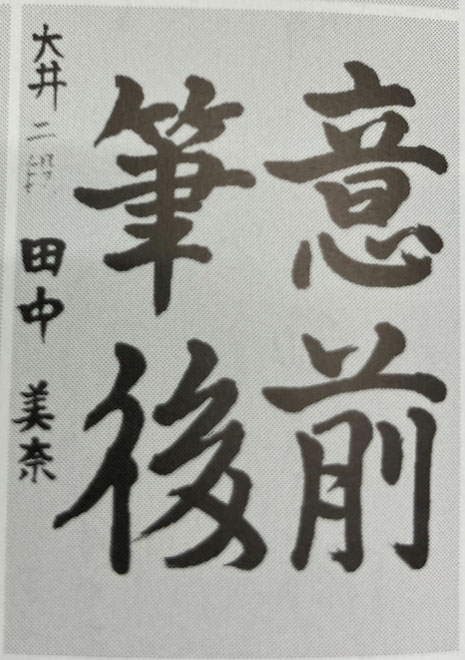 意前
筆後
大井 二段 田中 美奈